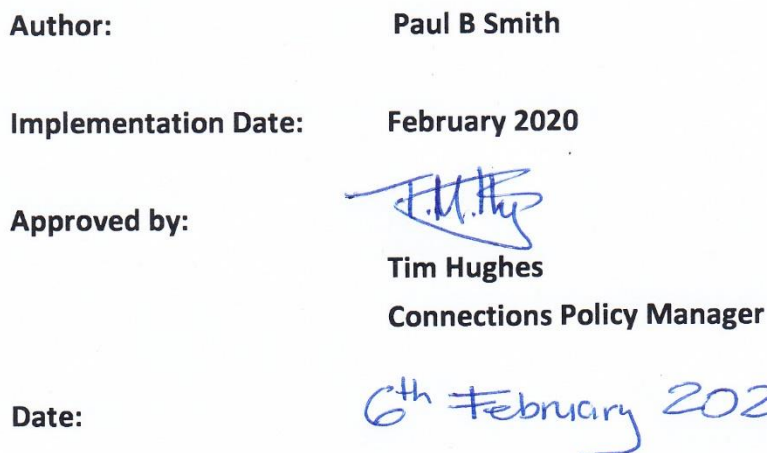 Author: Paul B Smith
Implementation Date: February 2020
Approved by: T.M.Hughes
Tim Hughes
Connections Policy Manager
Date: 6th February 202